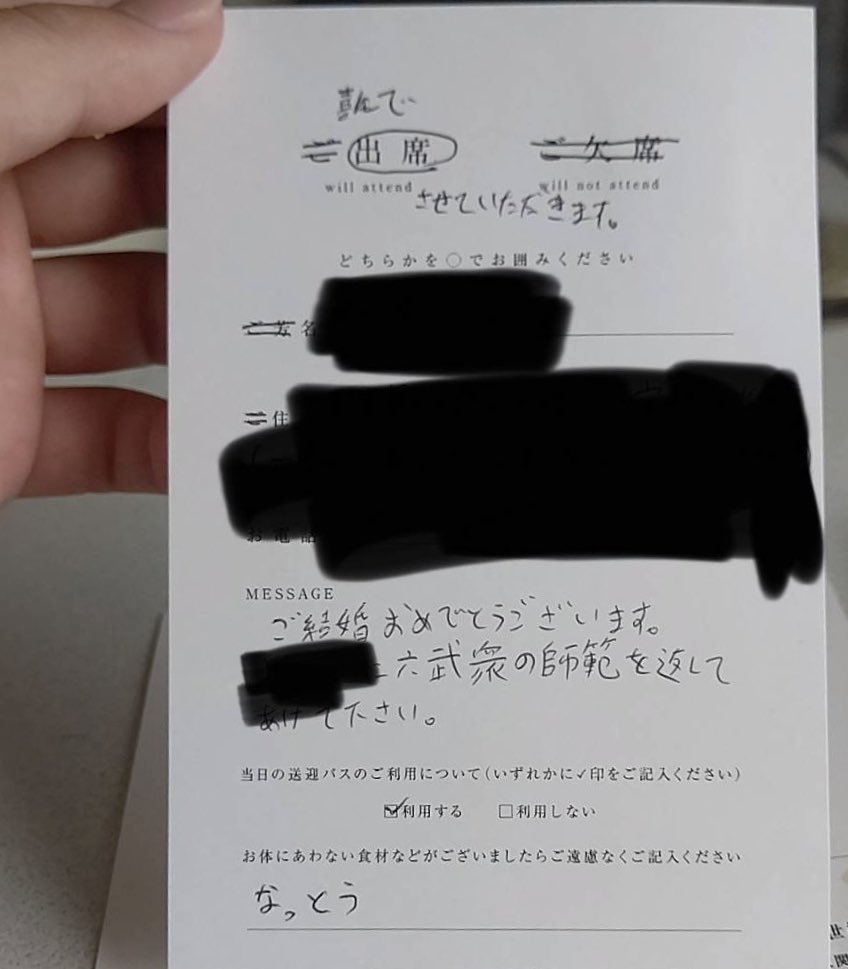 喜んで
ご出席 ご欠席
will attend will not attend
させていただきます。
どちらかを○でお囲みください
ご芳名
ご住
お電話
MESSAGE
ご結婚おめでとうございます。
に六武衆の師範を返して
あげて下さい。
当日の送迎バスのご利用について(いずれかに✓印をご記入ください)
☑利用する □利用しない
お体にあわない食材などがございましたらご遠慮なくご記入ください
なっとう